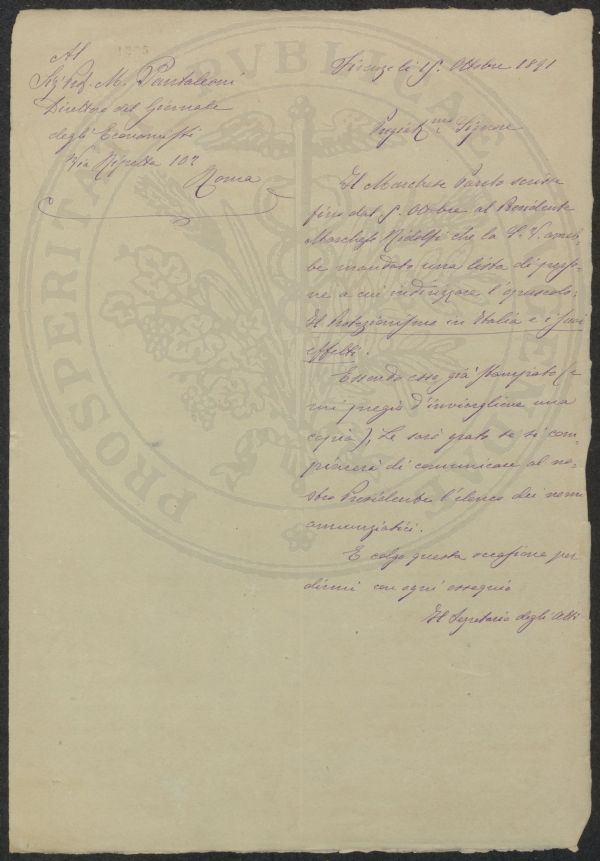 Al
Sig. Prof. M. Pantaleoni
Direttore del Giornale
degli Economisti
Via Ripetta 102
Roma
Firenze li 15. Ottobre 1891
Pregiatmo Signore
Il Marchese Pareto scrisse
fino dal 5. Ottobre al Presidente
Marchese Ridolfi che la S. V. avreb-
be mandato una lista di perso-
ne a cui indirizzare l'opuscolo:
Il Protezionismo in Italia e i suoi
effetti.
Essendo esso già stampato (e
mi pregio d'inviargliene una
copia), Le sarò grato se si com-
piacerà di comunicare al no-
stro Presidente l'elenco dei nomi
annunziatici.
E colgo questa occasione per
dirmi con ogni ossequio
Il Segretario degli Atti
PROSPERITATI PVBLICAE